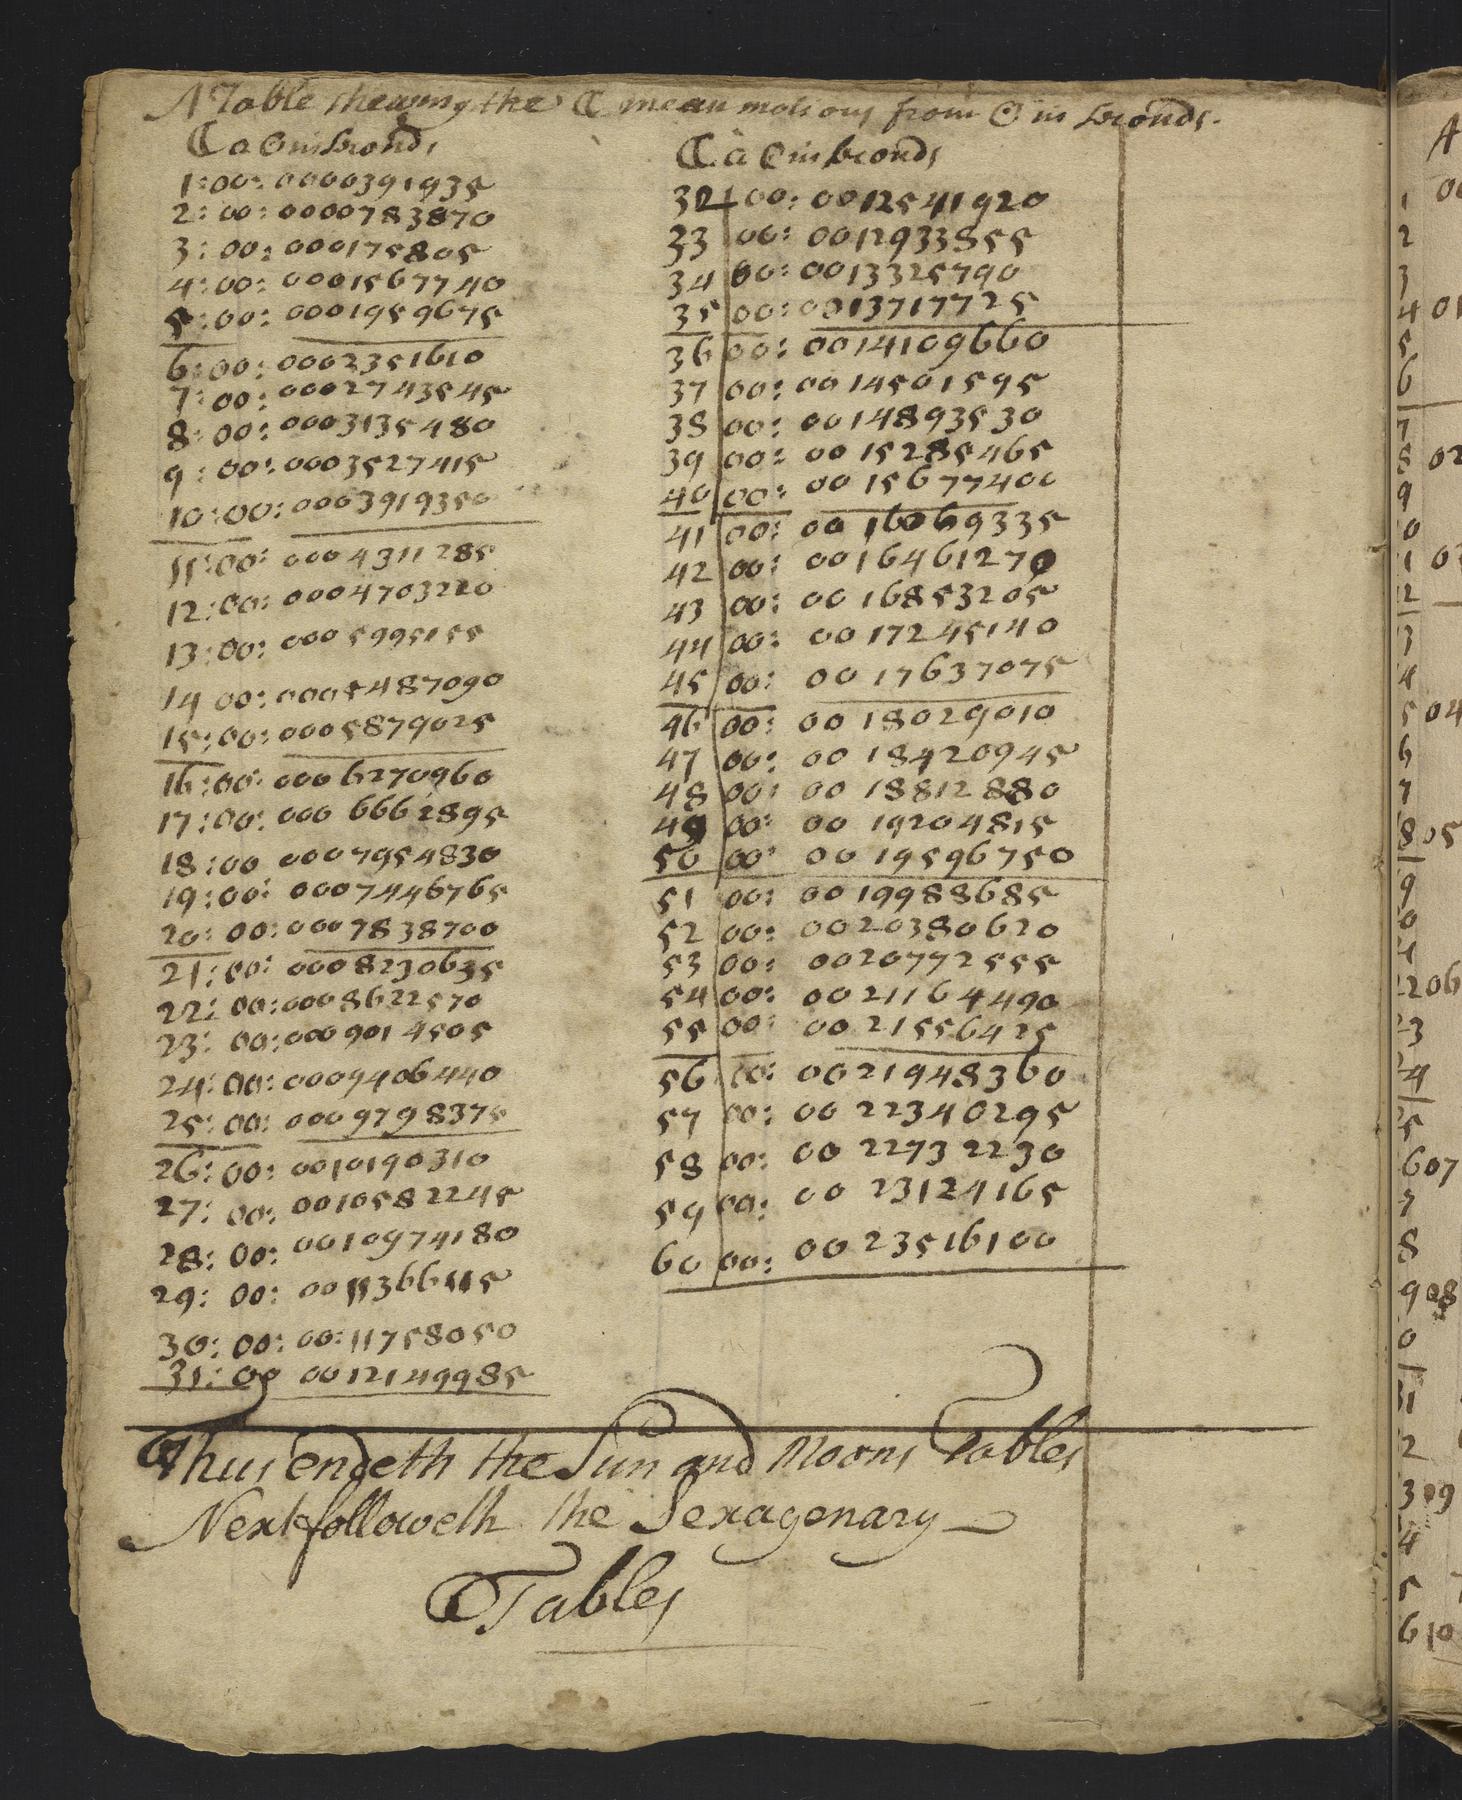 A Table shewing the ☾ mean motions from ☉ in seconds.
☾ a ☉ in seconds
1:00: 0000391935
2:00: 0000783870
3:00: 000175805
4:00: 0001567740
5:00: 0001959675
6:00: 0002351610
7:00: 0002743545
8:00: 0003135480
9:00: 0003527415
10:00: 0003919350
11:00: 0004311285
12:00: 0004703220
13:00: 0005995155
14 00: 0005487090
15:00: 0005879025
16:00: 0006270960
17:00: 000 6662895
18:00 0007954830
19:00: 0007446765
20: 00: 0007838700
21: 00: 0008230635
22: 00: 0008622570
23: 00: 0009014505
24: 00: 0009406440
25: 00: 0009798375
26: 00: 0010190310
27: 00: 0010582245
28: 00: 0010974180
29: 00: 0011366115
30: 00: 00:11758050
31: 00 0012149985
☾ à ☉ in seconds
32 00: 0012541920
33 00: 0012933855
34 00: 0013325790
35 00: 0013717725
36 00: 0014109660
37 00: 0014501595
38 00: 0014893530
39 00: 0015285465
40 00: 0015677400
41 00: 0016069335
42 00: 0016461270
43 00: 0016853205
44 00: 0017245140
45 00: 0017637075
46 00: 0018029010
47 00: 0018420945
48 00: 0018812880
49 00: 0019204815
50 00: 0019596750
51 00: 0019988685
52 00: 0020380620
53 00: 0020772555
54 00: 0021164490
55 00: 0021556425
56 00: 0021948360
57 00: 0022340295
58 00: 0022732230
59 00: 0023124165
60 00: 0023516100
Thus endeth the Sun and Moons Tables
Next followeth the Sexagenary
Tables
A
1
2
3
4 01
5
6
7
8 02
9
0
1 03
12
3
4
5 04
6
7
8 05
9
0
22 06
23
24
25
6 07
7
8
9 08
0
31
2
3 09
4
5
6 10